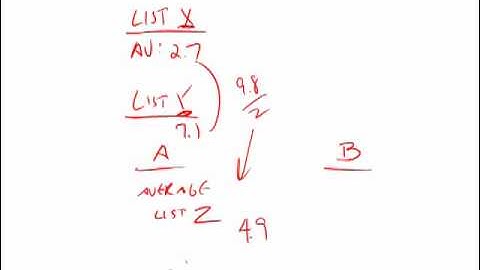 LIST X
AV: 2.7
LIST Y
7.1
9.8
2
A
B
AVERAGE
LIST Z
4.9